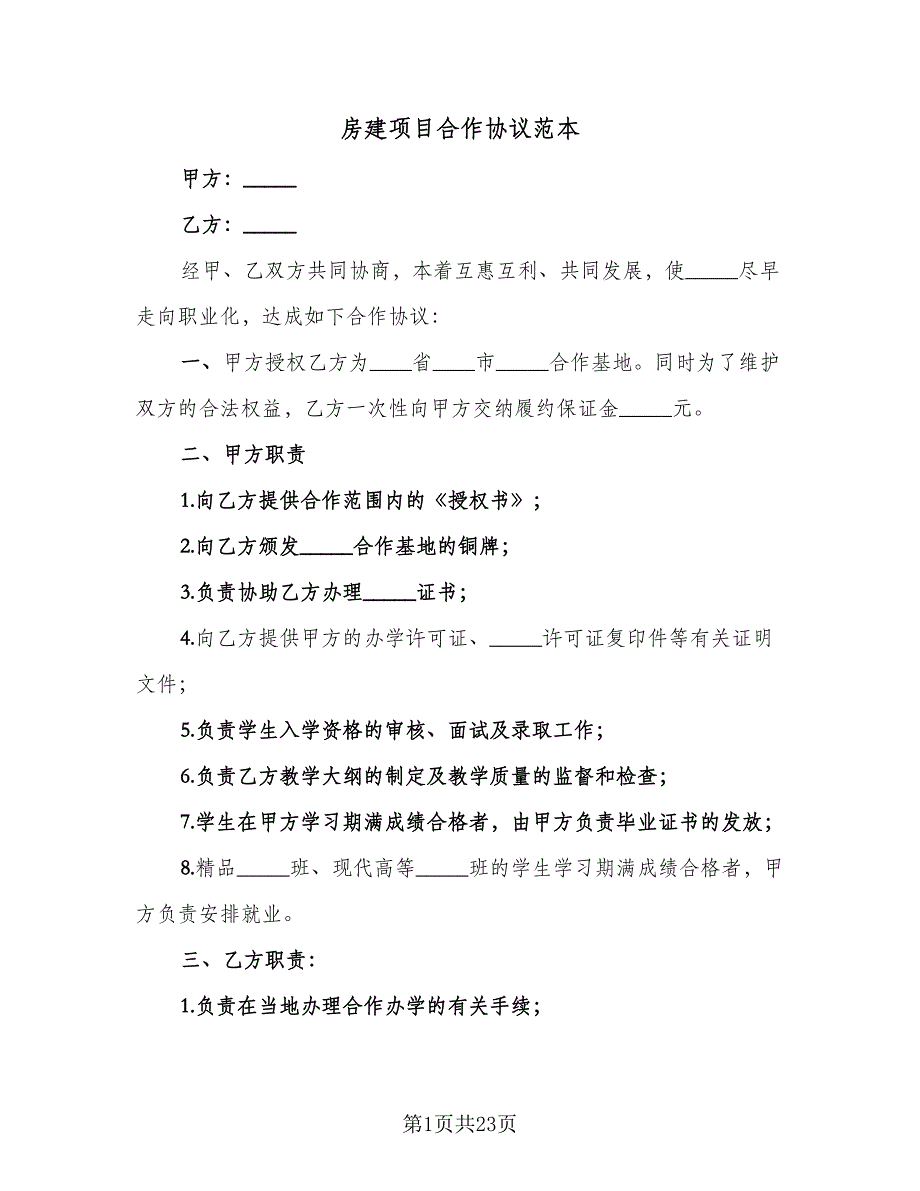 房建项目合作协议范本
甲方：_____
乙方：_____
经甲、乙双方共同协商，本着互惠互利、共同发展，使_____尽早
走向职业化，达成如下合作协议：
一、甲方授权乙方为____省____市_____合作基地。同时为了维护
双方的合法权益，乙方一次性向甲方交纳履约保证金_____元。
二、甲方职责
1.向乙方提供合作范围内的《授权书》；
2.向乙方颁发_____合作基地的铜牌；
3.负责协助乙方办理_____证书；
4.向乙方提供甲方的办学许可证、_____许可证复印件等有关证明
文件；
5.负责学生入学资格的审核、面试及录取工作；
6.负责乙方教学大纲的制定及教学质量的监督和检查；
7.学生在甲方学习期满成绩合格者，由甲方负责毕业证书的发放；
8.精品_____班、现代高等_____班的学生学习期满成绩合格者，甲
方负责安排就业。
三、乙方职责：
1.负责在当地办理合作办学的有关手续；
第1页共23页